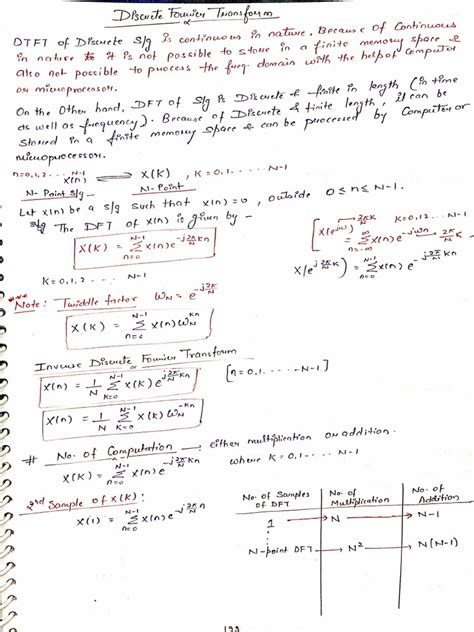 Discrete Fourier Transform
DTFT of Discrete S/g is continuous in nature. Because of Continuous
in nature it is not possible to store in a finite memory space &
Also not possible to process the freq. domain with the help of Computer
or microprocessor.
On the Other hand, DFT of S/g is Discrete & finite in length (in time
as well as frequency). Because of Discrete & finite length, it can be
Stored in a finite memory space & can be processed by Computer or
microprocessor.
n=0,1,2 ... N-1
x(n) ⇌ X(K) , K=0,1.... N-1
N- Point S/g N- Point
Let x(n) be a S/g such that x(n)=0, outside 0≤n≤N-1.
The DFT of x(n) is given by -
X(K) = N-1 Σ n=0 x(n) e^-j2π/N Kn
K=0,1,2 ... N-1
[X(e^jω) 2πK/N K=0,1,2... N-1
= ∞ Σ n=-∞ x(n) e^-jωn
X(e^j2π/N K) = N-1 Σ n=0 x(n) e^-j2π/N Kn
Note: Twiddle factor W_N = e^-j2π/N
X(K) = N-1 Σ n=0 x(n) W_N^Kn
Inverse Discrete Fourier Transform
x(n) = 1/N N-1 Σ K=0 X(K) e^j2π/N Kn [n=0,1.....N-1]
x(n) = 1/N N-1 Σ K=0 X(K) W_N^-Kn
# No. of Computation: either multiplication or addition.
X(K) = N-1 Σ n=0 x(n) e^-j2π/N Kn where K=0,1.... N-1
2nd Sample of X(K):
X(1) = N-1 Σ n=0 x(n) e^-j2π/N n
No. of Samples of DFT No. of Multiplication No. of Addition
1 → N → N-1
N-point DFT → N² → N(N-1)